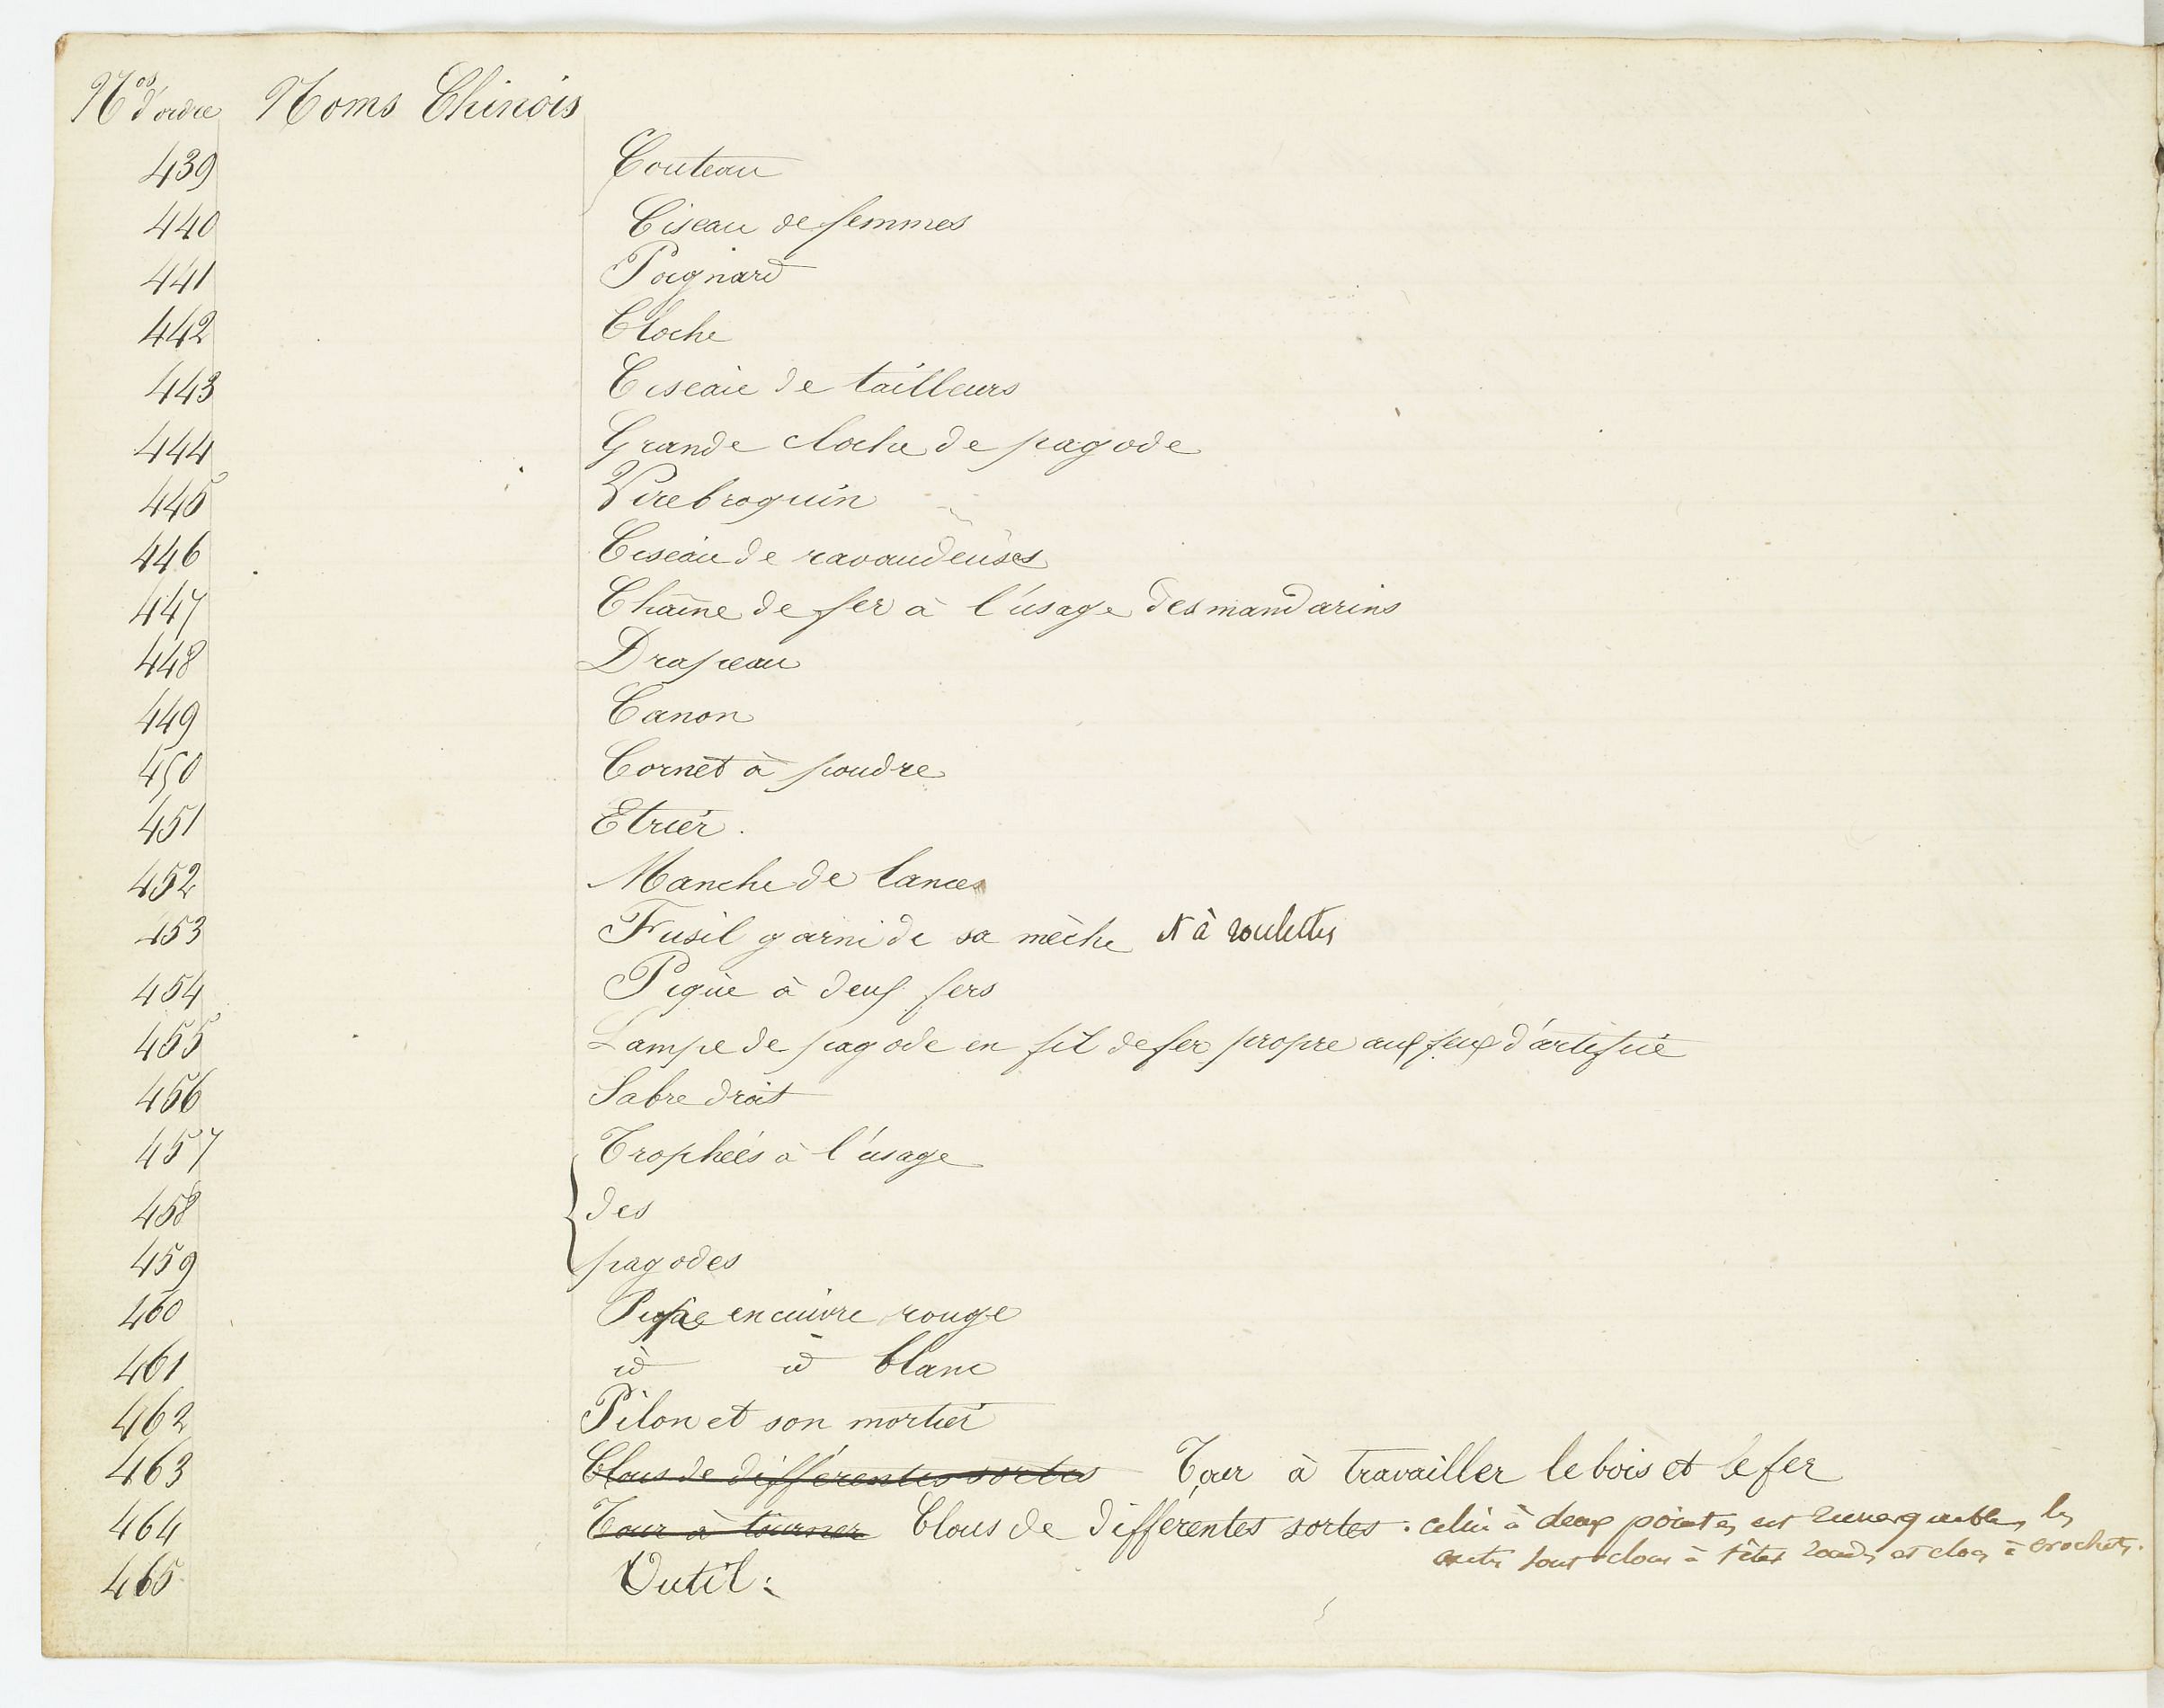 Nos d'ordre Noms Chinois
439 Couteau
440 Ciseau de femmes
441 Poignard
442 Cloche
443 Ciseau de tailleurs
444 Grande cloche de pagode
445 Virebroquin
446 Ciseau de ravaudeuses
447 Chaîne de fer à l'usage des mandarins
448 Drapeau
449 Canon
450 Cornet à poudre
451 Etrier.
452 Manche de lances
453 Fusil garni de sa mèche et à roulettes
454 Pique à deux fers
455 Lampe de pagode en fil de fer propre aux feux d'artifice
456 Sabre droit
457 Trophées à l'usage
458 des
459 pagodes
460 Pipe en cuivre rouge
461 id id blanc
462 Pilon et son mortier
463 Clous de différentes sortes Tour à travailler le bois et le fer
464 Tour à tourner Clous de différentes sortes. celui à deux pointes est remarquable, les
autres sont clous à têtes rondes et clous à crochets.
465 Outil: